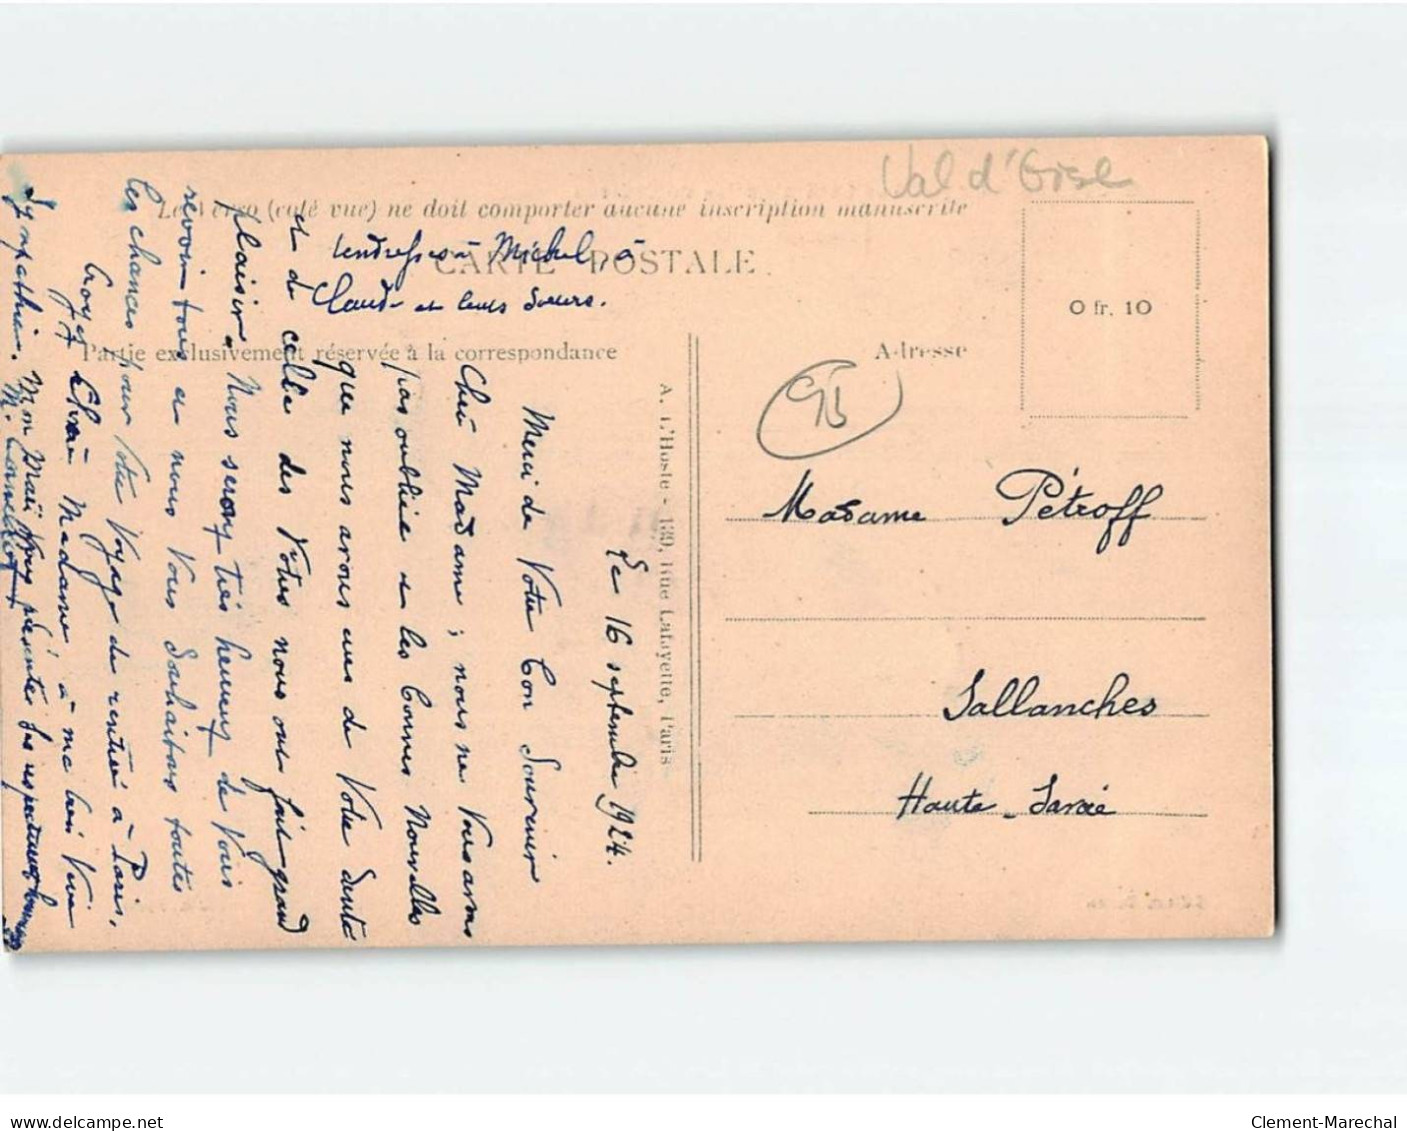 Val d'Oise
Le Verso (côté vue) ne doit comporter aucune inscription manuscrite
CARTE POSTALE
0 fr. 10
Partie exclusivement réservée à la correspondance
Adresse
95
A. L'Hoste - 139, Rue Lafayette, Paris
Madame Pétroff
Sallanches
Haute-Savoie
Le 16 septembre 1924.
Merci de Votre bon Souvenir
Chère Madame ; nous ne Vous avons
pas oubliée et les bonnes Nouvelles
que nous avons eues de Votre Santé
et de celle des Vôtres nous ont fait grand
plaisir. Nous serons très heureux de Vous
revoir tous et nous Vous Souhaitons toutes
les chances pour Votre Voyage de rentrée à Paris.
Croyez Chère Madame à ma bien Vive
Sympathie. Mon Mari Vous présente ses respectueux hommages
tendresses à Michel, à
Claude et leurs Sœurs.